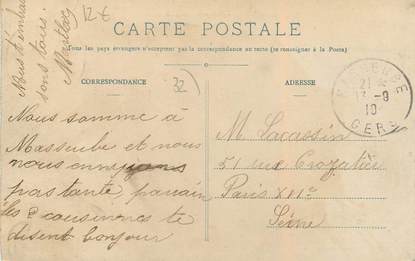 Nous t'embra
sons tous.
12 €
CARTE POSTALE
Tous les pays étrangers n'acceptent pas la correspondance au recto (se renseigner à la Poste)
CORRESPONDANCE
32
ADRESSE
MASSEUBE
21
13 - 9
10
GERS
Nous somme à
Masseube et nous
nous ennuyons
pas tante, parrain
les 2 cousinnes te
disent bonjour
M Lacassin
51 rue Crozatier
Paris XIIe
Seine